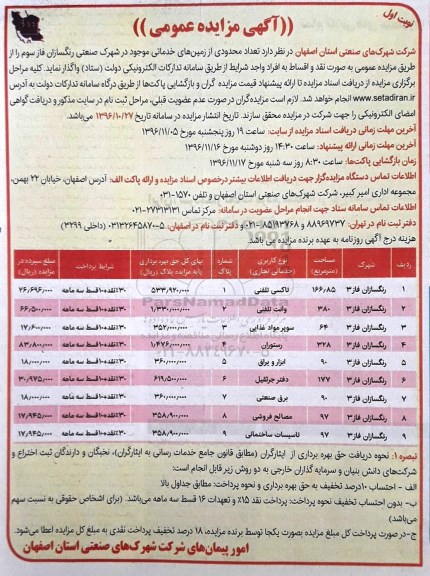 نوبت اول
((آگهی مزایده عمومی))
شرکت شهرک‌های صنعتی استان اصفهان در نظر دارد تعداد محدودی از زمین‌های خدماتی موجود در شهرک صنعتی رنگسازان فاز سوم را از
طریق مزایده عمومی به صورت نقد و اقساط به افراد واجد شرایط از طریق سامانه تدارکات الکترونیکی دولت (ستاد) واگذار نماید. کلیه مراحل
برگزاری مزایده از دریافت اسناد مزایده تا ارائه پیشنهاد قیمت مزایده گران و بازگشایی پاکت‌ها از طریق درگاه سامانه تدارکات دولت به آدرس
www.setadiran.ir انجام خواهد شد. لازم است مزایده‌گران در صورت عدم عضویت قبلی، مراحل ثبت نام در سایت مذکور و دریافت گواهی
امضای الکترونیکی را جهت شرکت در مزایده محقق سازند. تاریخ انتشار مزایده در سامانه تاریخ ۱۳۹۶/۱۰/۲۷ می‌باشد.
آخرین مهلت زمانی دریافت اسناد مزایده از سایت: ساعت ۱۹ روز پنجشنبه مورخ ۱۳۹۶/۱۱/۰۵
آخرین مهلت زمانی ارائه پیشنهاد: ساعت ۱۴:۳۰ روز دوشنبه مورخ ۱۳۹۶/۱۱/۱۶
زمان بازگشایی پاکت‌ها: ساعت ۸:۳۰ روز سه شنبه مورخ ۱۳۹۶/۱۱/۱۷
اطلاعات تماس دستگاه مزایده‌گزار جهت دریافت اطلاعات بیشتر درخصوص اسناد مزایده و ارائه پاکت الف: آدرس اصفهان، خیابان ۲۲ بهمن،
مجموعه اداری امیر کبیر، شرکت شهرک‌های صنعتی استان اصفهان و تلفن ۱۵۷۰-۰۳۱
اطلاعات تماس سامانه ستاد جهت انجام مراحل عضویت در سامانه: مرکز تماس ۲۷۳۱۳۱۳۱-۰۲۱
دفتر ثبت نام در تهران: ۸۸۹۶۹۷۳۷ و ۸۵۱۹۳۷۶۸-۰۲۱ و دفتر ثبت نام در اصفهان: ۵-۰۳۱۳۲۶۴۵۸۷۰ (داخلی ۳۲۹۹)
هزینه درج آگهی روزنامه به عهده برنده مزایده می باشد.
ردیف شهرک مساحت (مترمربع) نوع کاربری (خدماتی تجاری) شماره پلاک بهای کل حق بهره برداری پایه مزایده پلاک (ریال) شرایط پرداخت مبلغ سپرده در مزایده (ریال)
۱ رنگسازان فاز۳ ۱۶۶٫۸۵ تاکسی تلفنی ۱ ۵۳۳٬۹۲۰٬۰۰۰ ۳۰٪نقد+۱۰قسط سه ماهه ۲۶٬۶۹۶٬۰۰۰
۲ رنگسازان فاز۳ ۳۸۰ وانت تلفنی ۲ ۱٬۳۳۰٬۰۰۰٬۰۰۰ ۳۰٪نقد+۱۰قسط سه ماهه ۶۶٬۵۰۰٬۰۰۰
۳ رنگسازان فاز۳ ۶۴ سوپر مواد غذایی ۳ ۳۵۲٬۰۰۰٬۰۰۰ ۳۰٪نقد+۱۰قسط سه ماهه ۱۷٬۶۰۰٬۰۰۰
۴ رنگسازان فاز۳ ۳۲۸ رستوران ۴ ۱٬۴۷۶٬۰۰۰٬۰۰۰ ۳۰٪نقد+۱۰قسط سه ماهه
۵ رنگسازان فاز۳ ۹۰ ابزار و یراق ۵ ۳۶۰٬۰۰۰٬۰۰۰ ۳۰٪نقد+۱۰قسط سه ماهه ۱۸٬۰۰۰٬۰۰۰
۶ رنگسازان فاز۳ ۱۷۷ دفتر جرثقیل ۶ ۶۱۹٬۵۰۰٬۰۰۰ ۳۰٪نقد+۱۰قسط سه ماهه ۳۰٬۹۷۵٬۰۰۰
۷ رنگسازان فاز۳ ۹۰ برق صنعتی ۷ ۳۶۰٬۰۰۰٬۰۰۰ ۳۰٪نقد+۱۰قسط سه ماهه ۱۸٬۰۰۰٬۰۰۰
۸ رنگسازان فاز۳ ۹۷ مصالح فروشی ۸ ۳۵۸٬۹۰۰٬۰۰۰ ۳۰٪نقد+۱۰قسط سه ماهه ۱۷٬۹۴۵٬۰۰۰
۹ رنگسازان فاز۳ ۹۷ تاسیسات ساختمانی ۹ ۳۵۸٬۹۰۰٬۰۰۰ ۳۰٪نقد+۱۰قسط سه ماهه ۱۷٬۹۴۵٬۰۰۰
تبصره ۱: نحوه دریافت حق بهره برداری از ایثارگران (مطابق قانون جامع خدمات رسانی به ایثارگران)، نخبگان و دارندگان ثبت اختراع و
شرکت‌های دانش بنیان و سرمایه گذاران خارجی به دو روش زیر قابل انجام است:
الف - احتساب ۱۰درصد تخفیف به حق بهره برداری و نحوه پرداخت: مطابق جداول بالا
ب- بدون احتساب تخفیف نحوه پرداخت: پرداخت نقد ۱۵٪ و تعهدات ۱۶ قسط سه ماهه می‌باشد. (برای اشخاص حقوقی به نسبت سهم
می‌باشد)
ج- در صورت پرداخت کل مبلغ مزایده بصورت یکجا توسط برنده مزایده، ۱۸ درصد تخفیف پرداخت نقدی به مبلغ کل مزایده اعطا می‌شود.
امور پیمان‌های شرکت شهرک‌های صنعتی استان اصفهان
ParsNamadData
۰۲۱-۸۸۳۴۹۶۷۰-۵